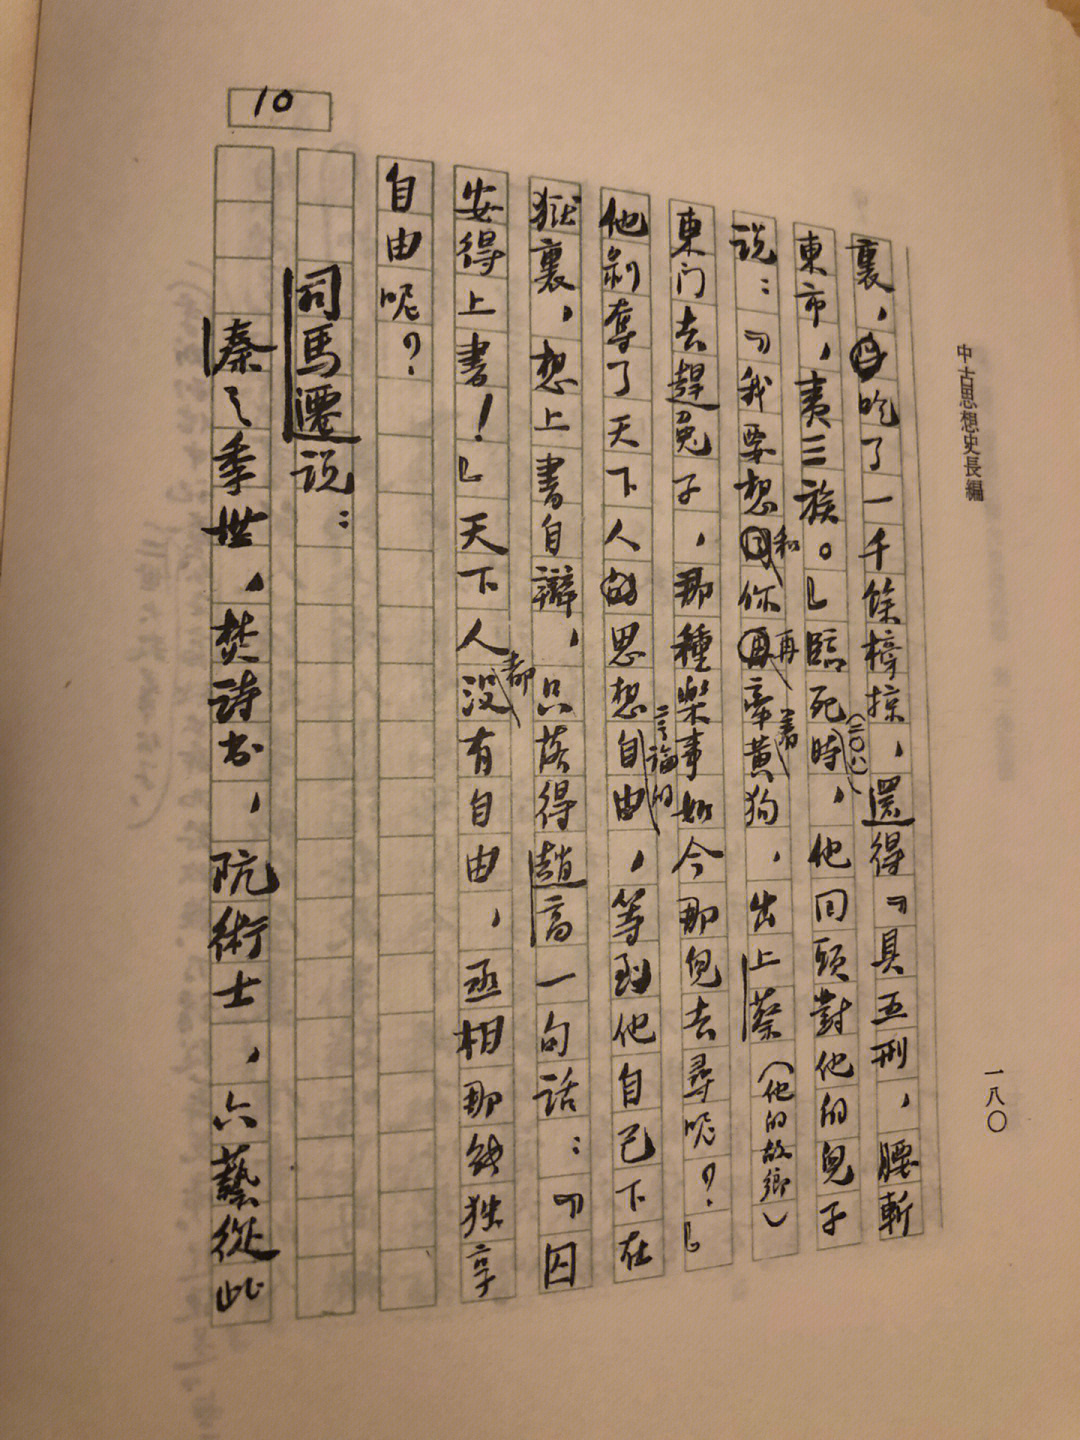 中古思想史長編
一八〇
裏，吃了一千餘榜掠，還得『具五刑，腰斬
東市，夷三族。』臨死時（二〇八），他回頭對他的兒子
說：『我要想和你再牽着黃狗，出上蔡（他的故鄉）
東門去趕兔子，那種樂事如今那兒去尋呢？』
他剝奪了天下人思想言論的自由，等到他自己下在
獄裏，想上書自辯，只落得趙高一句話：『囚
安得上書！』天下人都沒有自由，丞相那能独享
自由呢？
司馬遷說：
秦之季世，焚詩书，阬術士，六藝從此
10